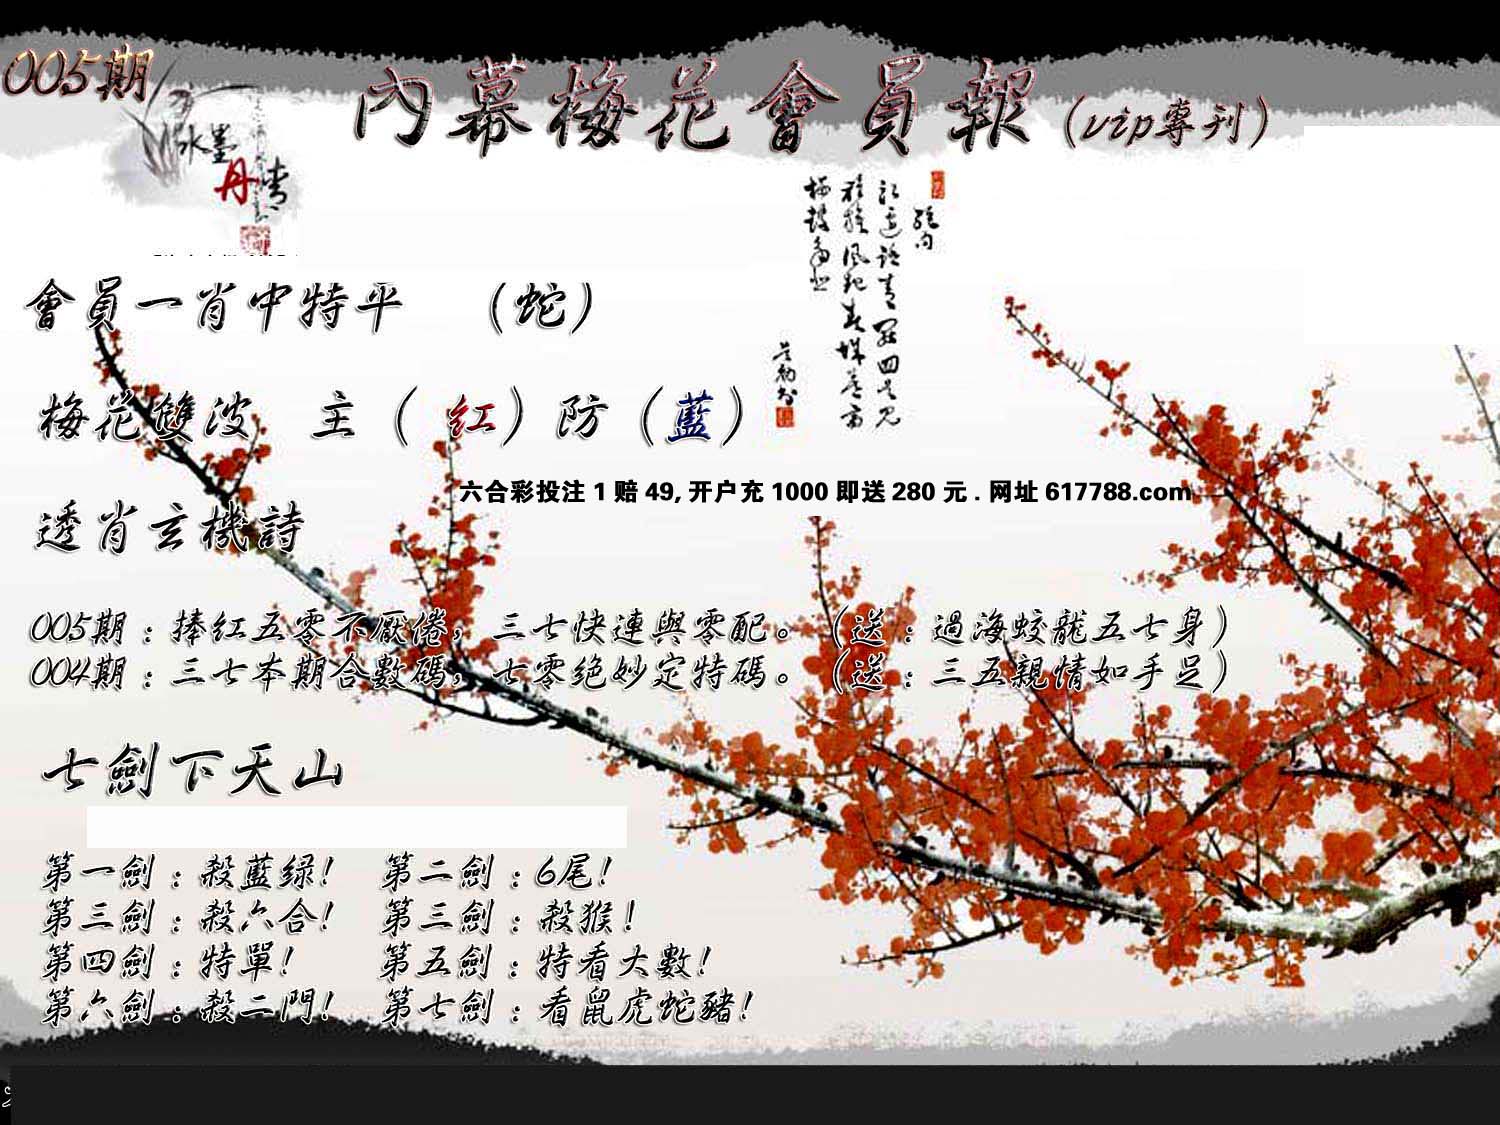 005期
內幕梅花會員報（vip專刊）
水墨
丹青
絕句
會員一肖中特平 （蛇）
梅花雙波 主（紅）防（藍）
六合彩投注 1 赔 49, 开户充 1000 即送 280 元 . 网址 617788.com
透肖玄機詩
005期：捧红五零不厭倦，三七快連與零配。（送：過海蛟龍五七身）
004期：三七本期合數碼，七零绝妙定特碼。（送：三五親情如手足）
七劍下天山
第一劍：殺藍绿! 第二劍：6尾!
第三劍：殺六合! 第三劍：殺猴!
第四劍：特單! 第五劍：特看大數!
第六劍：殺二門! 第七劍：看鼠虎蛇豬!